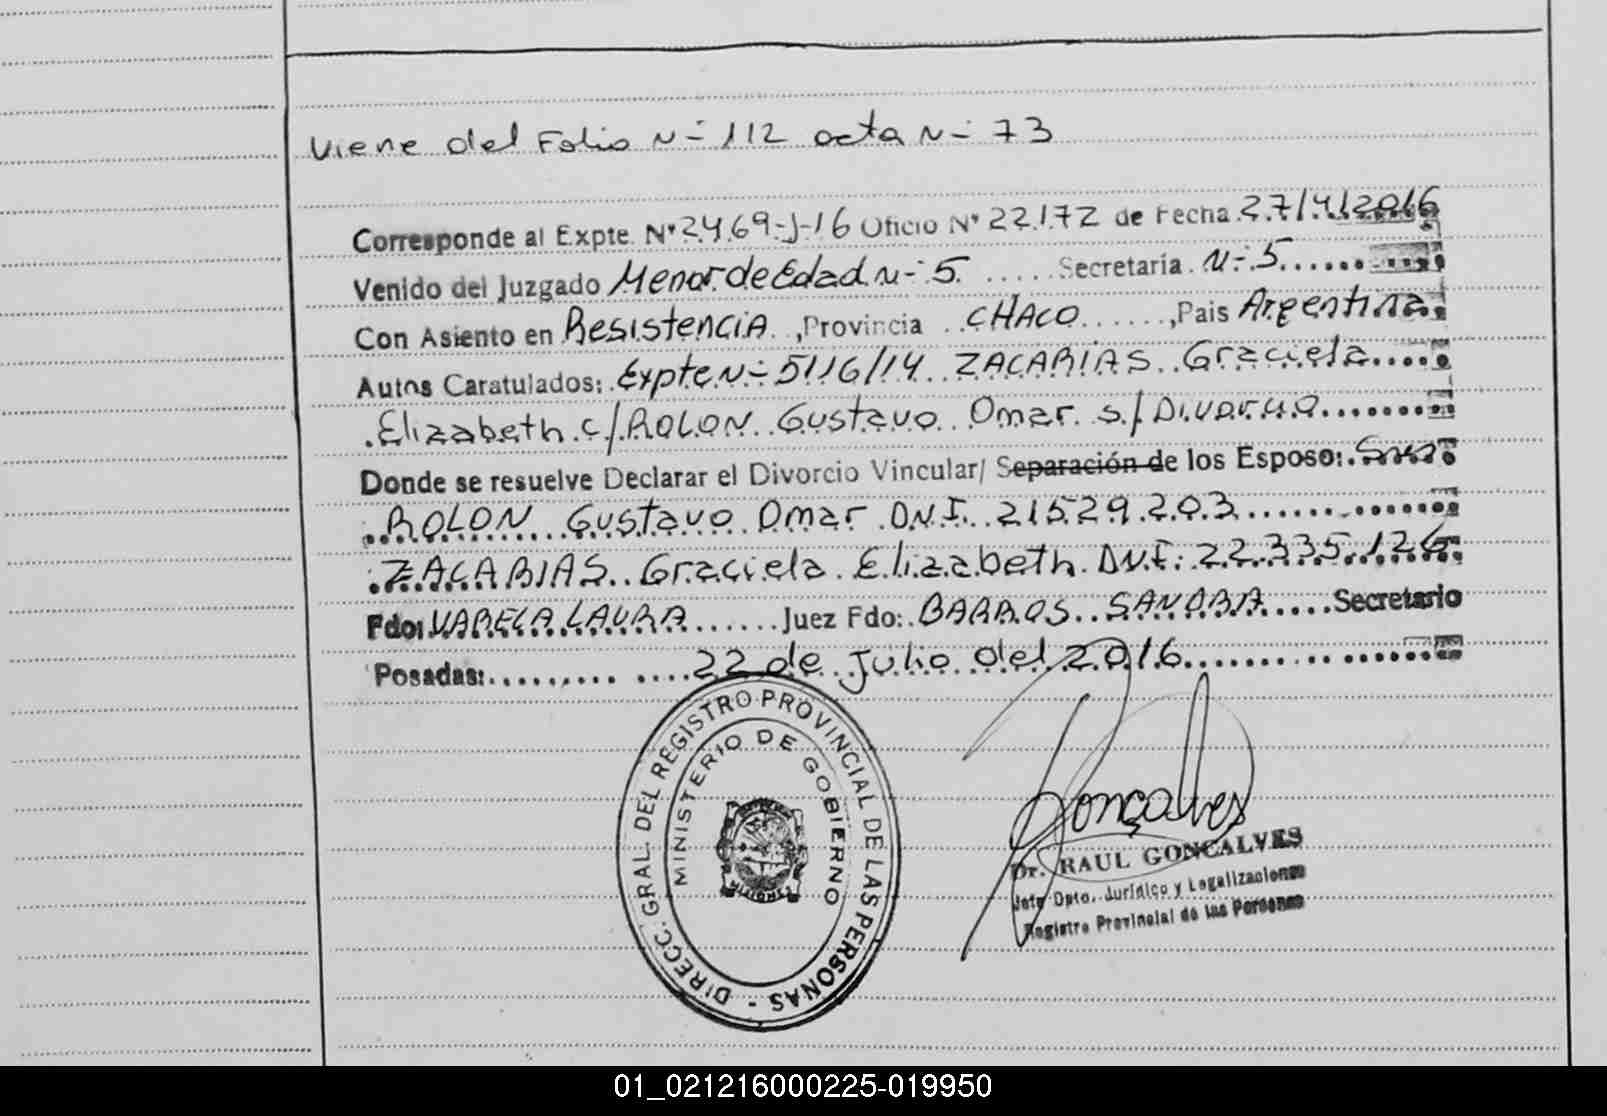 Viene del Folio N- 112 acta N- 73
Corresponde al Expte. N° 2469-J-16 Oficio N° 22172 de Fecha 27/4/2016
Venido del Juzgado Menor de Edad N- 5 Secretaría N- 5
Con Asiento en Resistencia, Provincia CHACO, Pais Argentina
Autos Caratulados: Expte N- 5116/14 ZACARIAS Graciela
Elizabeth c/ ROLON Gustavo Omar s/ Divorcio
Donde se resuelve Declarar el Divorcio Vincular/ Separación de los Esposo:
ROLON Gustavo Omar D.N.I. 21529.203
ZACARIAS Graciela Elizabeth DNI: 22.335.126
Fdo: VARELA LAURA Juez Fdo: BARROS SANDRA Secretario
Posadas: 22 de Julio del 2016
DIRECC. GRAL. DEL REGISTRO PROVINCIAL DE LAS PERSONAS -
MINISTERIO DE GOBIERNO
Gonçalves
Dr. RAUL GONCALVES
Jefe Dpto. Jurídico y Legalizaciones
Registro Provincial de las Personas
01_021216000225-019950